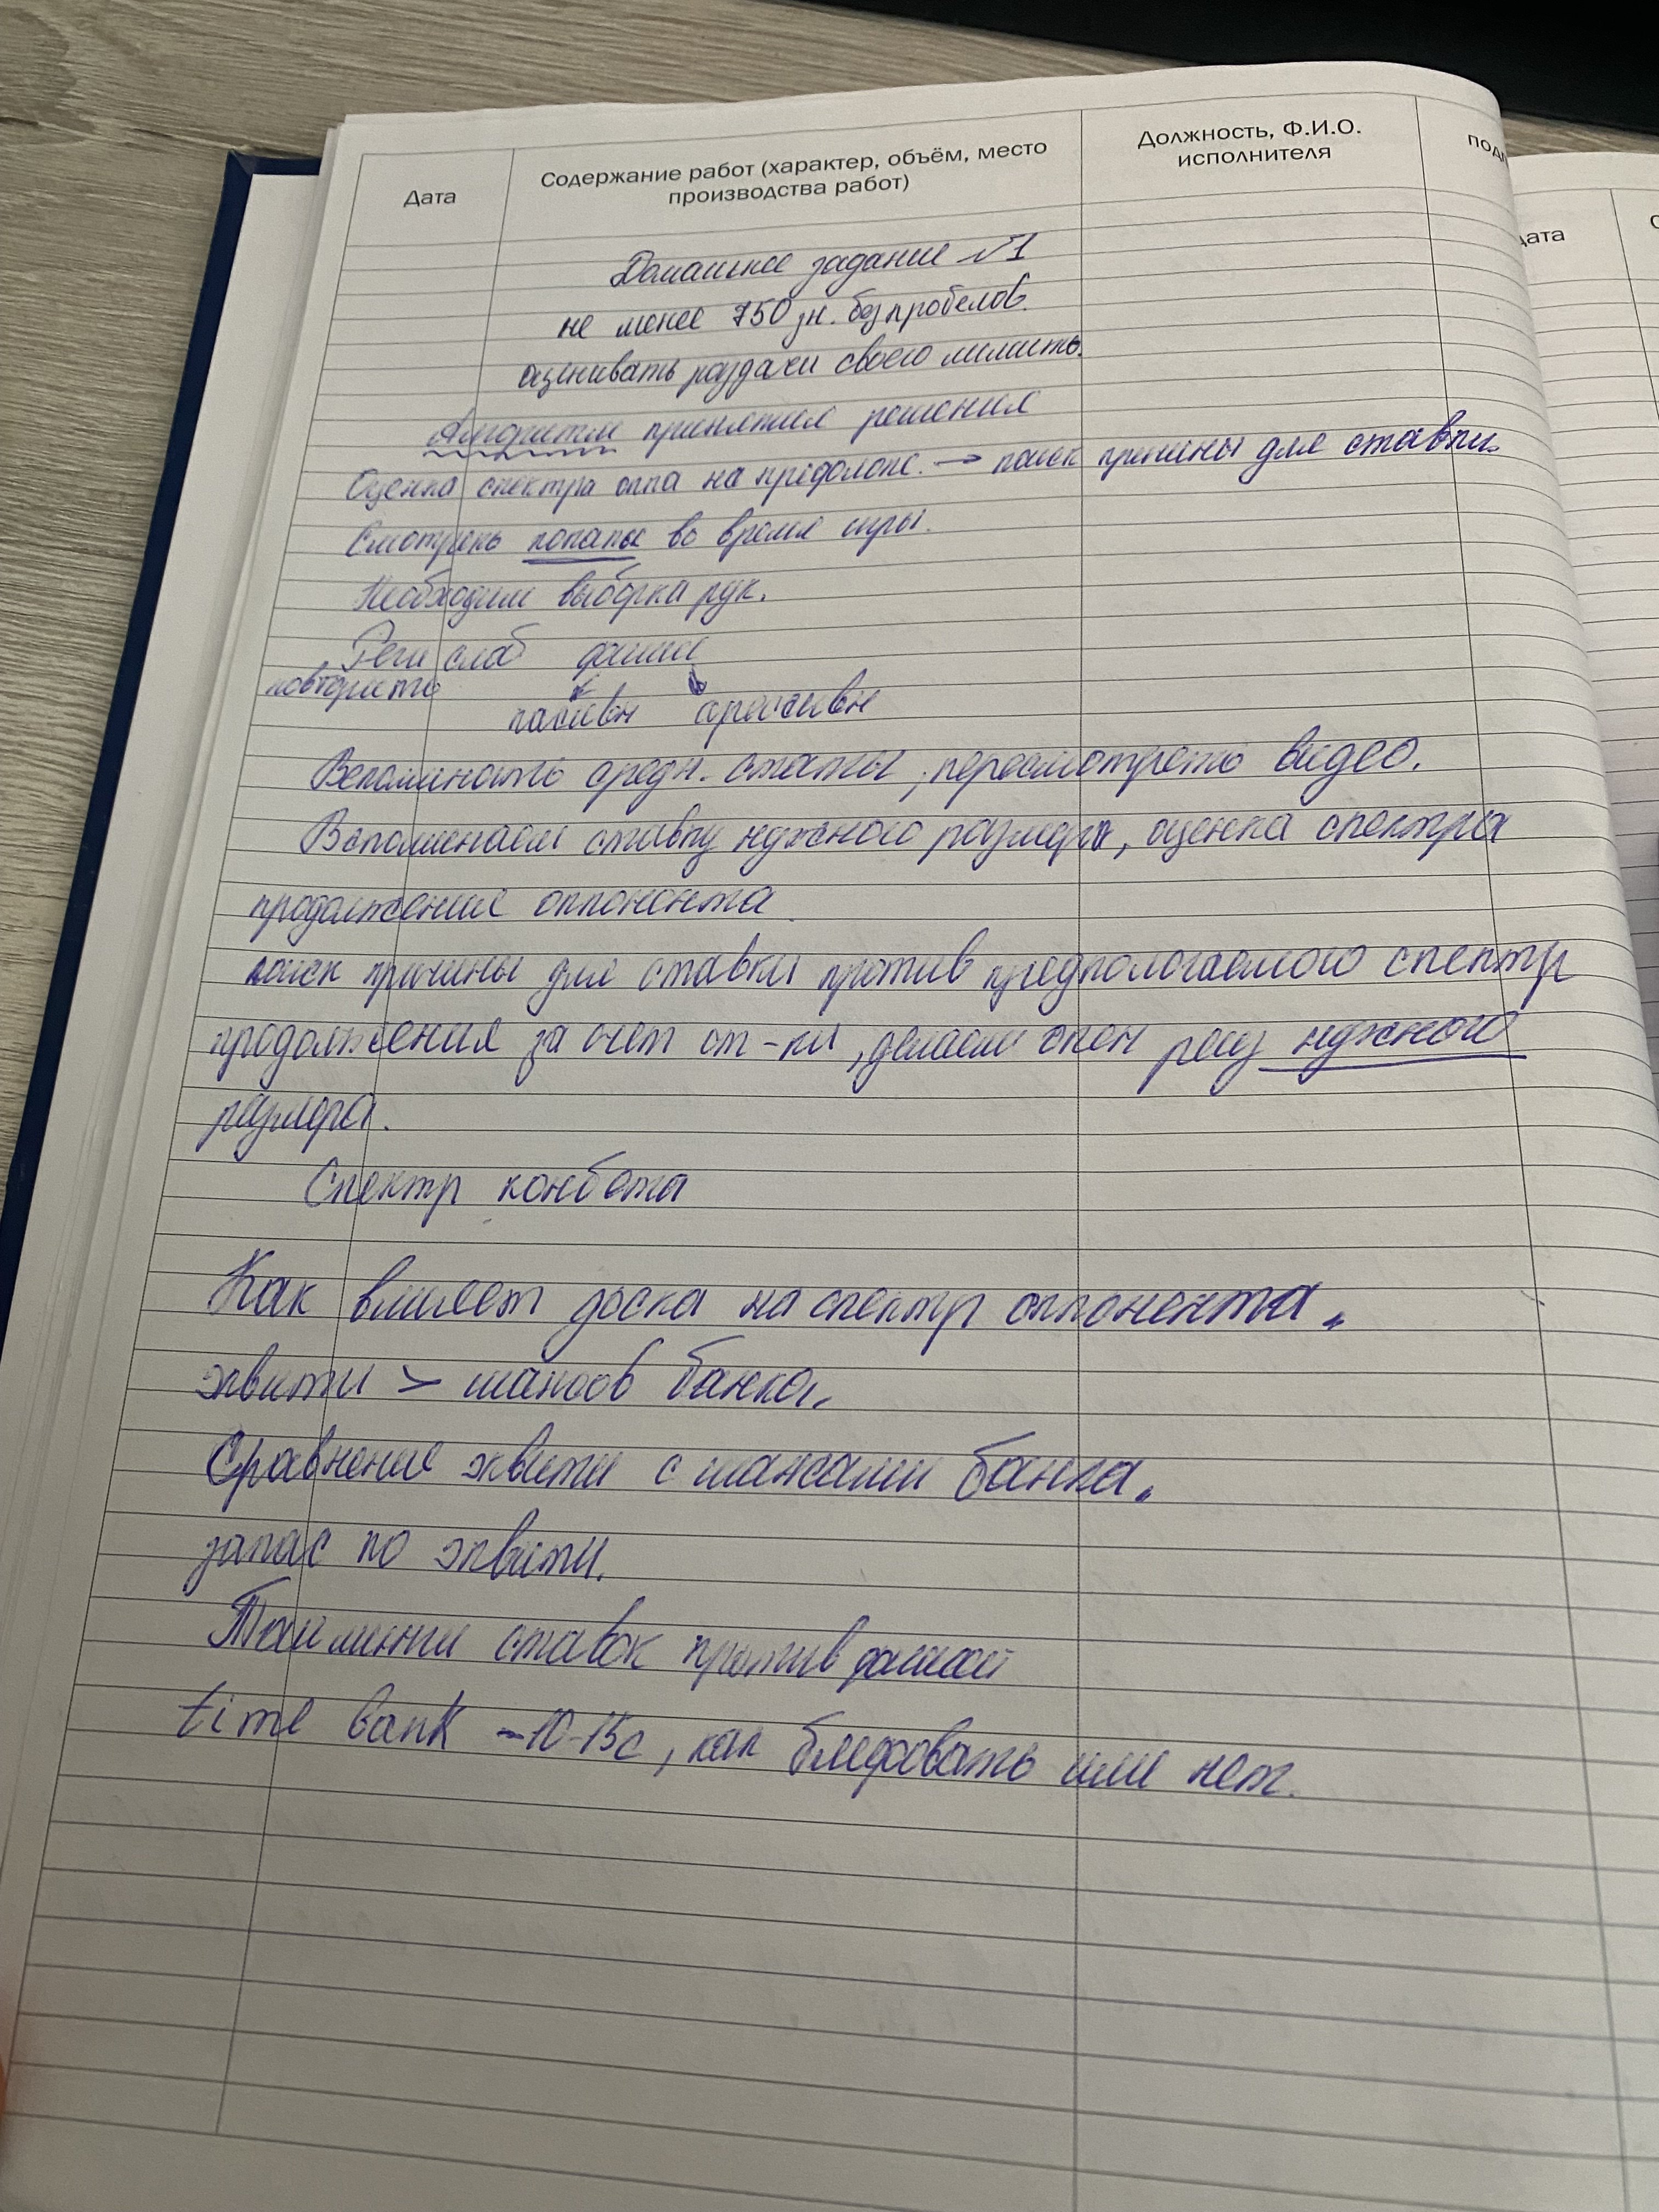 Дата
Содержание работ (характер, объём, место
производства работ)
Должность, Ф.И.О.
исполнителя
Дата
Домашнее задание №1
не менее 750 зн. без пробелов.
оценивать раздачи своего лимита.
Алгоритм принятия решения
Оценка спектра оппа на префлопе. → поиск причины для ставки.
Смотрень попапы во время игры.
Необходим выборка рук.
Реги слаб фиши
повторить
пасивн агрессивн
Вспоминать средн. статы, пересмотреть видео.
Вспоминаем ставку нужного размера, оценка спектра
продолжение оппонента
поиск причины для ставки против предпологаемого спектр
продолжения за счет от-ки, делаем нужного
размера.
Спектр конбета
Как влияет доска на спектр оппонента.
эквити > шансов банка.
Сравнение эквити с шансами банка.
запас по эквити.
Тайминги ставок против фишей
time bank - 10-15с, как блефовать или нет.